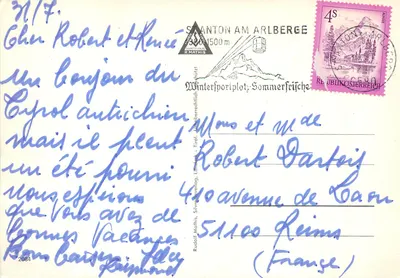 31/7.
Cher Robert et Renée
un bonjour du
Tyrol autrichien
mais il pleut
un été pourri
nous espérons
que vous avez de
bonnes vacances
Bons baisers
Raymond
ST. ANTON AM ARLBERGE
1500m
Wintersportplatz, Sommerfrische
4S
REPUBLIK ÖSTERREICH
Mons et Mde
Robert Dartois
410 avenue de Laon
51100 Reims
(France)